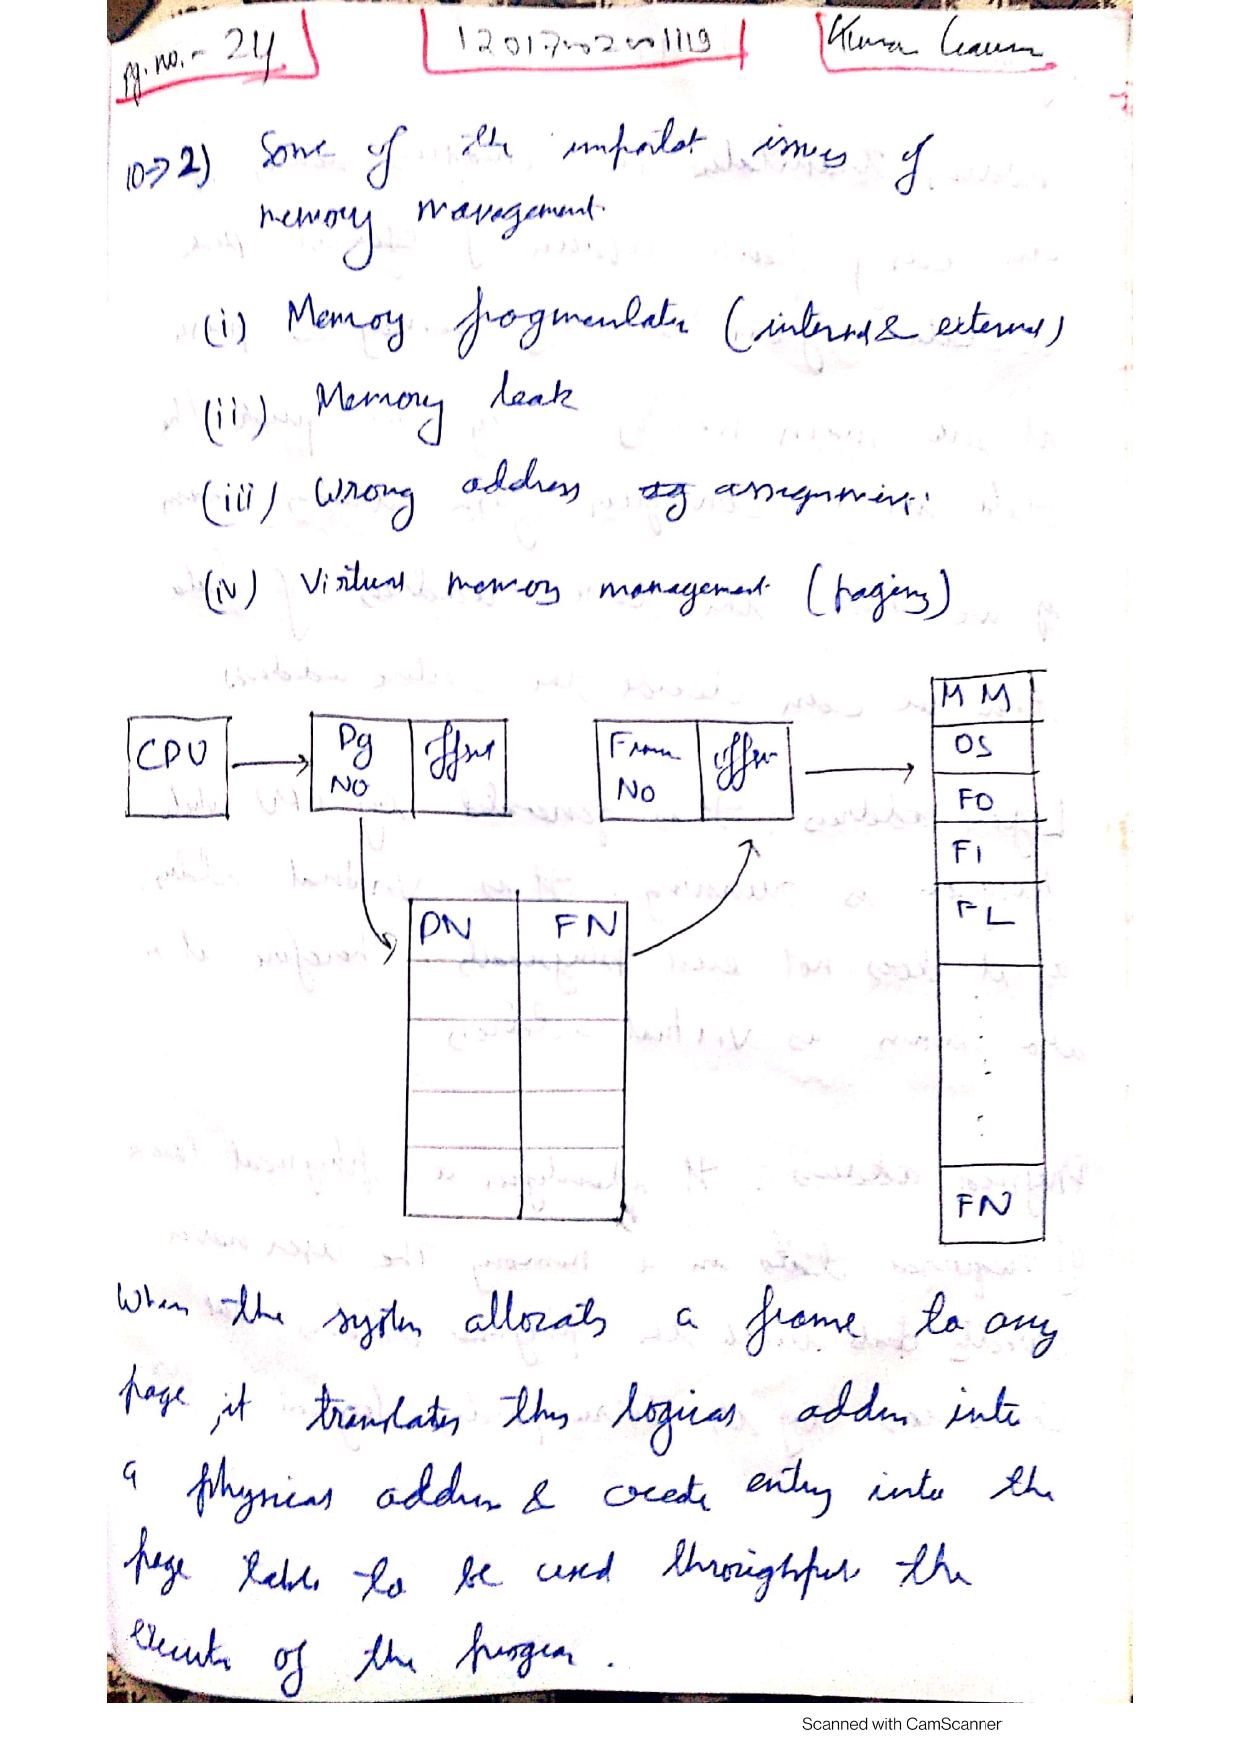 pg. no. - 24
12017002001119
Kumar
10=> 2) Some of the importat issues of
memory management
(i) Memoy fragmentatn (internal & external)
(ii) Memory leak
(iii) Wrong address assignment.
(iv) Virtual memory management (paging)
CPU
Pg
NO
offset
Fram
NO
offset
MM
OS
F0
F1
FL
FN
PN FN
When the system allocats a frame to any
page, it translates this logical addres into
a physical addres & create entry into the
page table to be used throughput the
execute of the progra.
Scanned with CamScanner